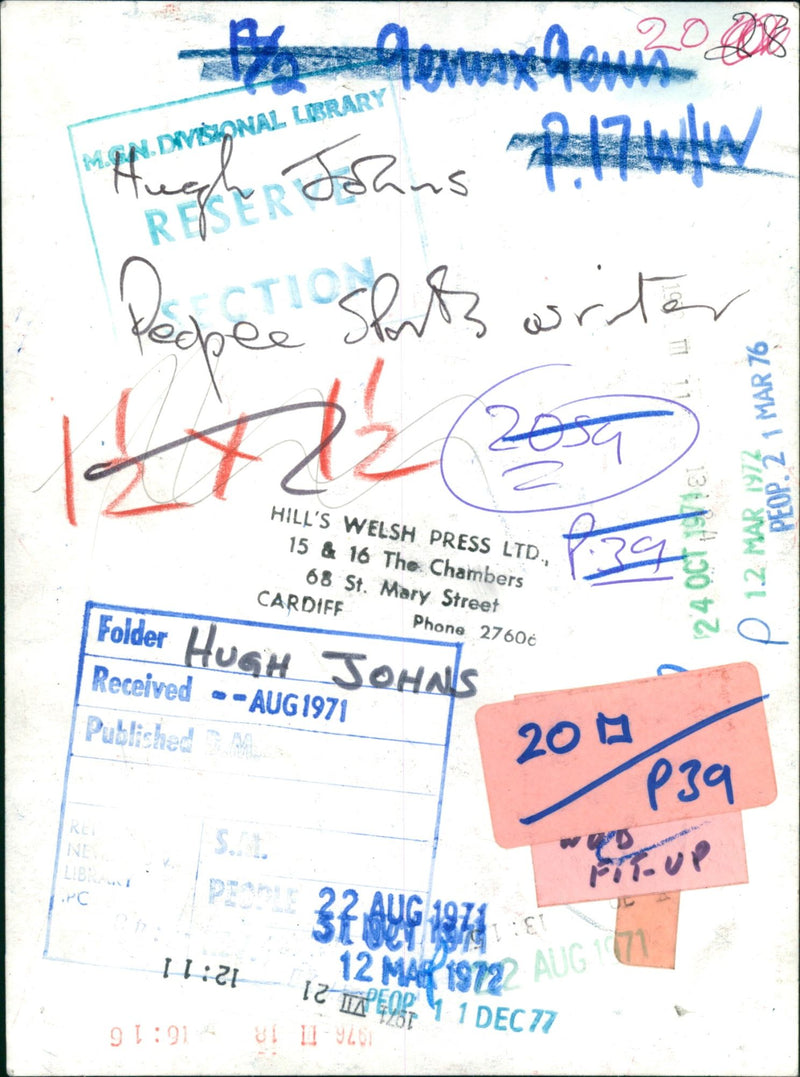 20 28
P/2 9ems x 9ems
P.17 W/W
M.G.N. DIVISIONAL LIBRARY
RESERVE
SECTION
Hugh Johns
People Sports writer
1½ x 1½
2059
2
P.39
HILL'S WELSH PRESS LTD.,
15 & 16 The Chambers
68 St. Mary Street
CARDIFF
Phone 27606
24 OCT 1971
12 MAR 1972
PEOP. 21 MAR 76
Folder HUGH JOHNS
Received -- AUG 1971
Published D.M.
S.M.
PEOPLE
LIBRARY
22 AUG 1971
31 OCT 1971
12 MAR 1972
PEOP. 11 DEC 77
22 AUG 1971
20
P39
WOB
FIT-UP
12:11
1971 VII 21
1976 II 18 - 16:16